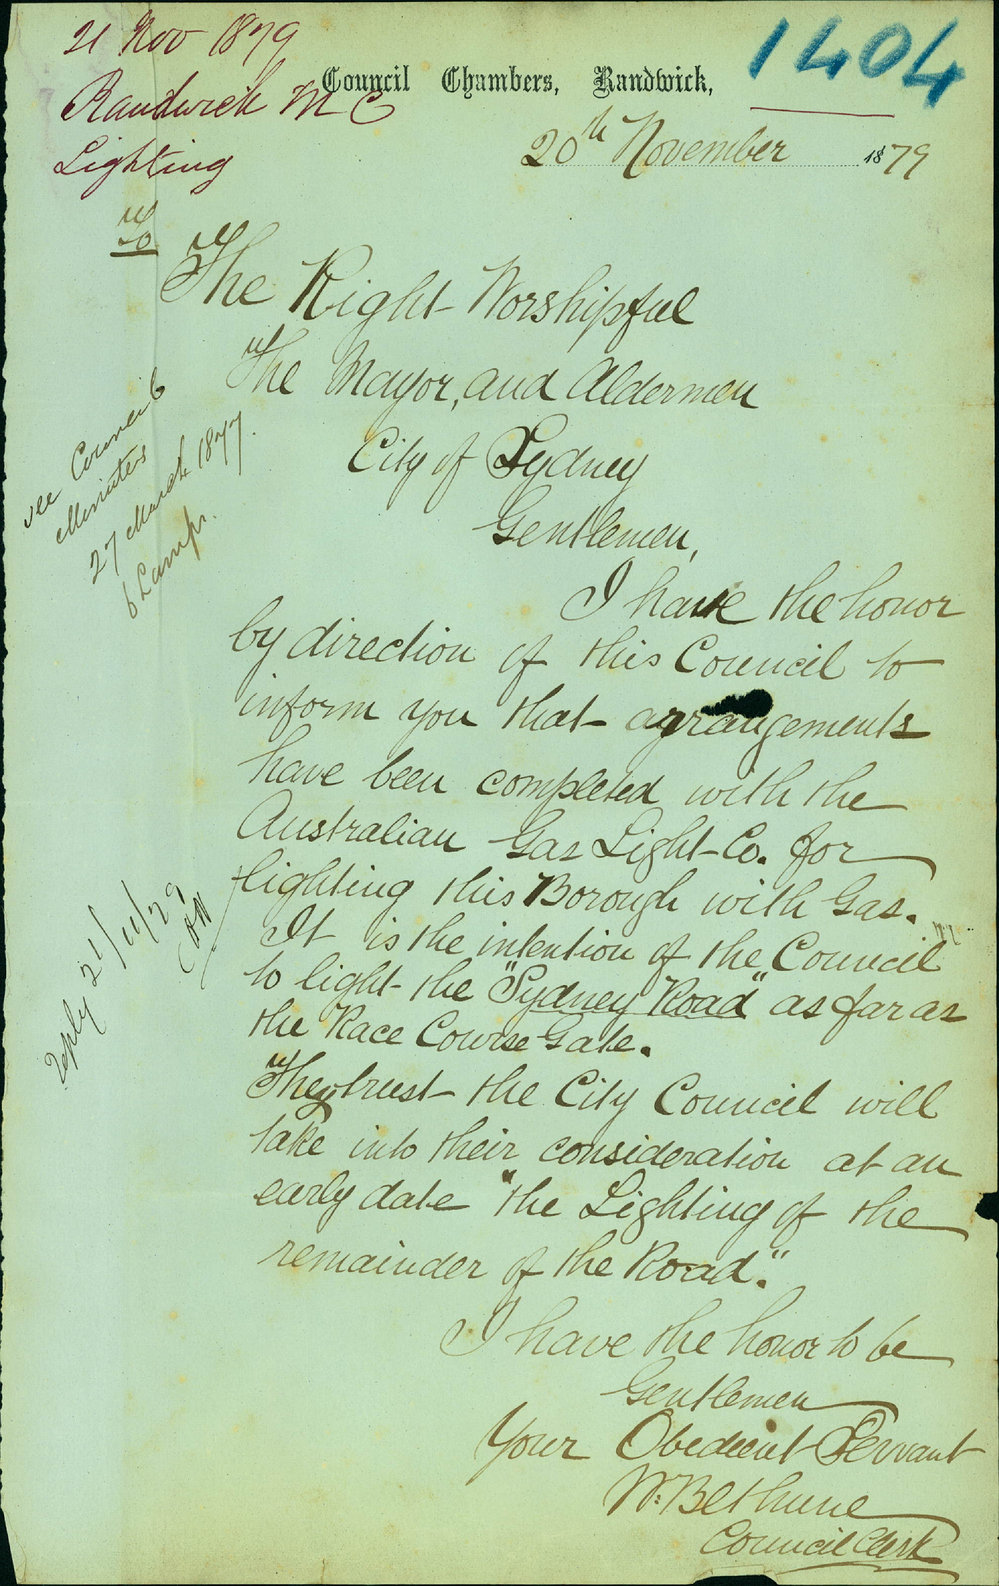 21 Nov 1879
Randwick M C
Lighting
1404
Council Chambers, Randwick,
20th November 1879
To
The Right Worshipful
The Mayor, and Aldermen
City of Sydney
Gentlemen,
see Council
Minutes
27 March 1877.
6 Lamps.
I have the honor
by direction of this Council to
inform you that arrangements
have been completed with the
Australian Gas Light Co. for
lighting this Borough with Gas.
It is the intention of the Council
to light the "Sydney Road" as far as
the Race Course Gate.
They trust the City Council will
take into their consideration at an
early date "the Lighting of the
remainder of the Road."
Reply 21/11/79
I have the honor to be
Gentlemen
Your Obedient Servant
Wm. Bethune
Council Clerk